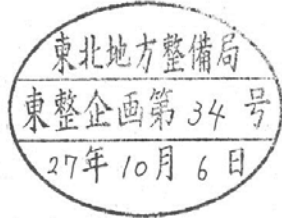 東北地方整備局
東整企画第34号
27年10月6日